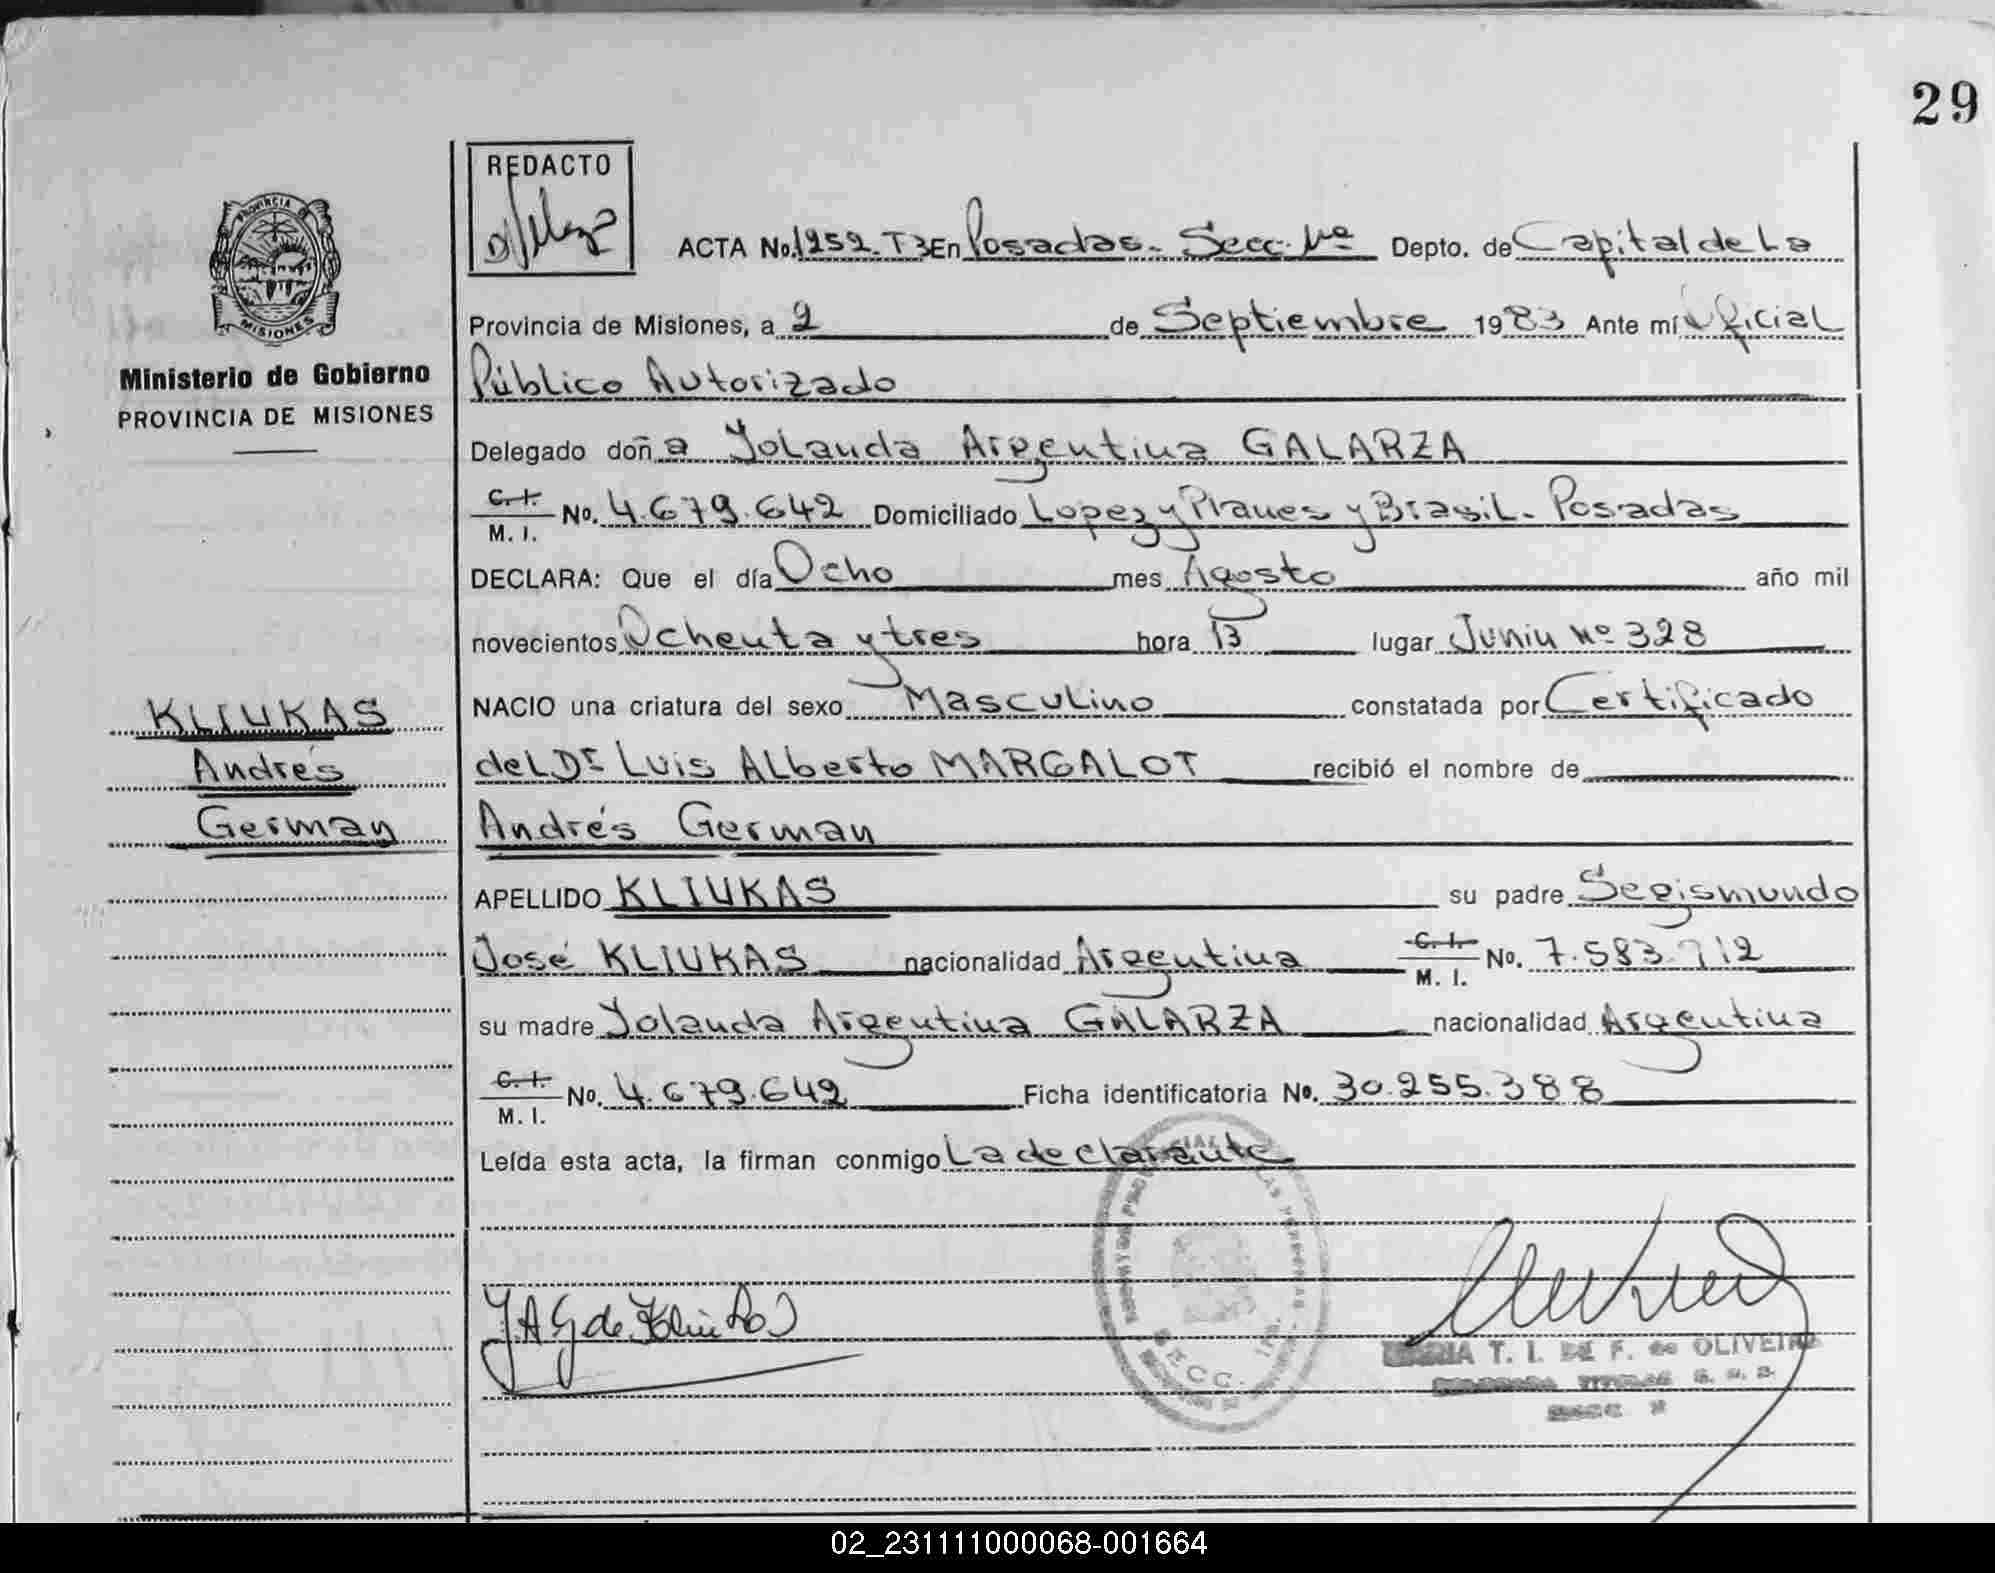 29
REDACTO
PROVINCIA DE
MISIONES
Ministerio de Gobierno
PROVINCIA DE MISIONES
ACTA No. 1252. T3 En Posadas. Secc. 1ª Depto. de Capital de La
Provincia de Misiones, a 2 de Septiembre 1983 Ante mí Oficial
Público Autorizado
Delegado doña Yolanda Argentina GALARZA
C. I. M. I. No. 4.679.642 Domiciliado Lopez y Planes y Brasil. Posadas
DECLARA: Que el día Ocho mes Agosto año mil
novecientos Ochenta y tres hora 13 lugar Junin Nº 328
NACIO una criatura del sexo Masculino constatada por Certificado
del Dr Luis Alberto MARGALOT recibió el nombre de
Andrés German
KLIUKAS
Andrés
German
APELLIDO KLIUKAS su padre Segismundo
José KLIUKAS nacionalidad Argentina C. I. M. I. No. 7.583.712
su madre Yolanda Argentina GALARZA nacionalidad Argentina
C. I. M. I. No. 4.679.642 Ficha identificatoria No. 30.255.388
Leída esta acta, la firman conmigo La declarante
Y.A.G de Kliukas
SECC. 1ra.
MARIA T. I. DE F. de OLIVEIRA
02_231111000068-001664